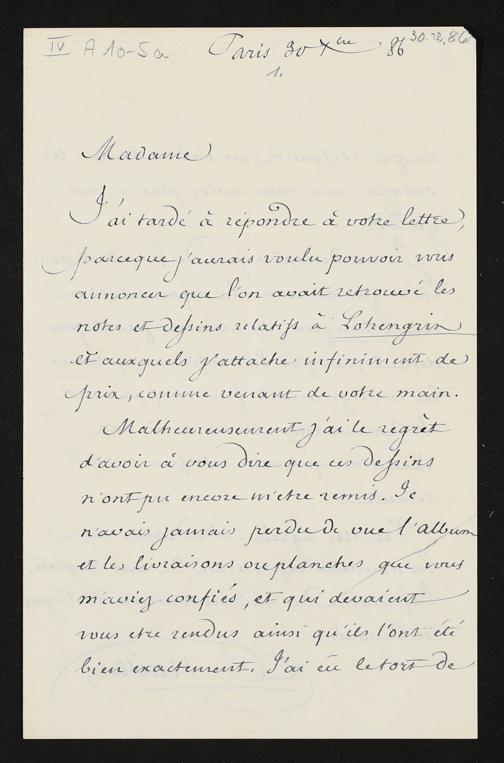 IV A 10-5a
Paris 30 Xbre 86
30.12.86
1.
Madame
J'ai tardé à répondre à votre lettre,
parceque j'aurais voulu pouvoir vous
annoncer que l'on avait retrouvé les
notes et dessins relatifs à Lohengrin
et auxquels j'attache infiniment de
prix, comme venant de votre main.
Malheureusement j'ai le regrèt
d'avoir à vous dire que ces dessins
n'ont pu encore m'etre remis. Je
n'avais jamais perdu de vue l'album
et les livraisons ou planches que vous
m'aviez confiés, et qui devaient
vous etre rendus ainsi qu'ils l'ont été
bien exactement. J'ai eu le tort de